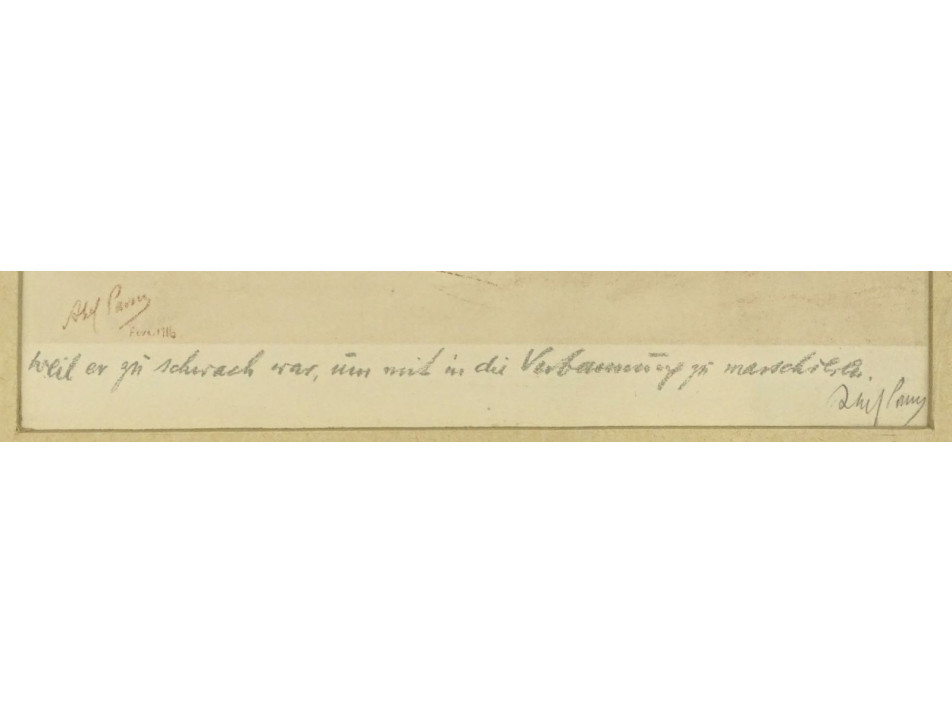 Abel Pann
weil er zu schwach war, um mit in die Verbannung zu marschieren.
Abel Pann